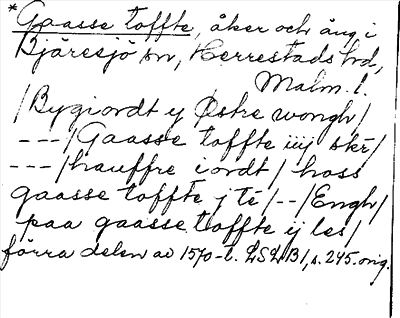 *Gaasse toffte, åker och äng i
Bjäresjö sn, Herrestads hd,
Malm. l.
/Bygiordt y Østre wongh/
---/Gaasse toffte iiij skr/
---/hauffre iordt/ hoss
gaasse toffte j té/--/Engh/
paa gaasse toffte ij les/
förra delen av 1570-t. LSLB1, s. 245. orig.